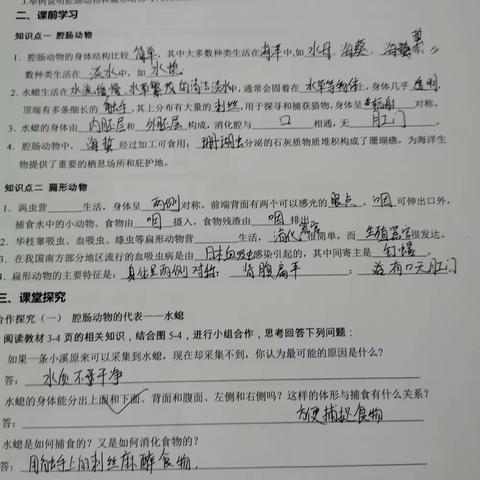 3.举例说明腔肠动物和扁形动物
二、课前学习
知识点一 腔肠动物
1. 腔肠动物的身体结构比较简单，其中大多数种类生活在海洋中，如水母、海葵、海蜇等；少
数种类生活在淡水中，如水螅。
2. 水螅生活在水流缓慢、水草繁茂的清洁淡水中，通常会固着在水草等物体上，身体几乎透明，
顶端有多条细长的触手，其上分布有大量的刺丝，用于探寻和捕获猎物，身体呈辐射对称。
3. 水螅的身体由内胚层和外胚层构成，消化腔与口相通，无肛门。
4. 腔肠动物中，海蜇经过加工可食用；珊瑚虫分泌的石灰质物质堆积构成了珊瑚礁，为海洋生
物提供了重要的栖息场所和庇护地。
知识点二 扁形动物
1. 涡虫营 生活，身体呈两侧对称。前端背面有两个可以感光的眼点。咽可伸出口外，
捕食水中的小动物。食物由咽摄入，食物残渣由咽排出。
2. 华枝睾吸虫、血吸虫、绦虫等扁形动物营 生活，消化器官很简单，而生殖器官很发达。
3. 在我国南方部分地区流行的血吸虫病是由日本血吸虫感染引起的，其中间寄主是钉螺。
4. 扁形动物的主要特征是：身体呈两侧对称；背腹扁平；有口无肛门
三、课堂探究
合作探究（一） 腔肠动物的代表——水螅
阅读教材 3-4 页的相关知识，结合图 5-4，进行小组合作，思考回答下列问题：
如果一条小溪原来可以采集到水螅，现在却采集不到，你认为最可能的原因是什么？
答：水质不干净
水螅的身体能分出上面和下面、背面和腹面、左侧和右侧吗？这样的体形与捕食有什么关系？
答： 方便捕捉食物
水螅是如何捕食的？又是如何消化食物的？
答：用触手上的刺丝麻醉食物.